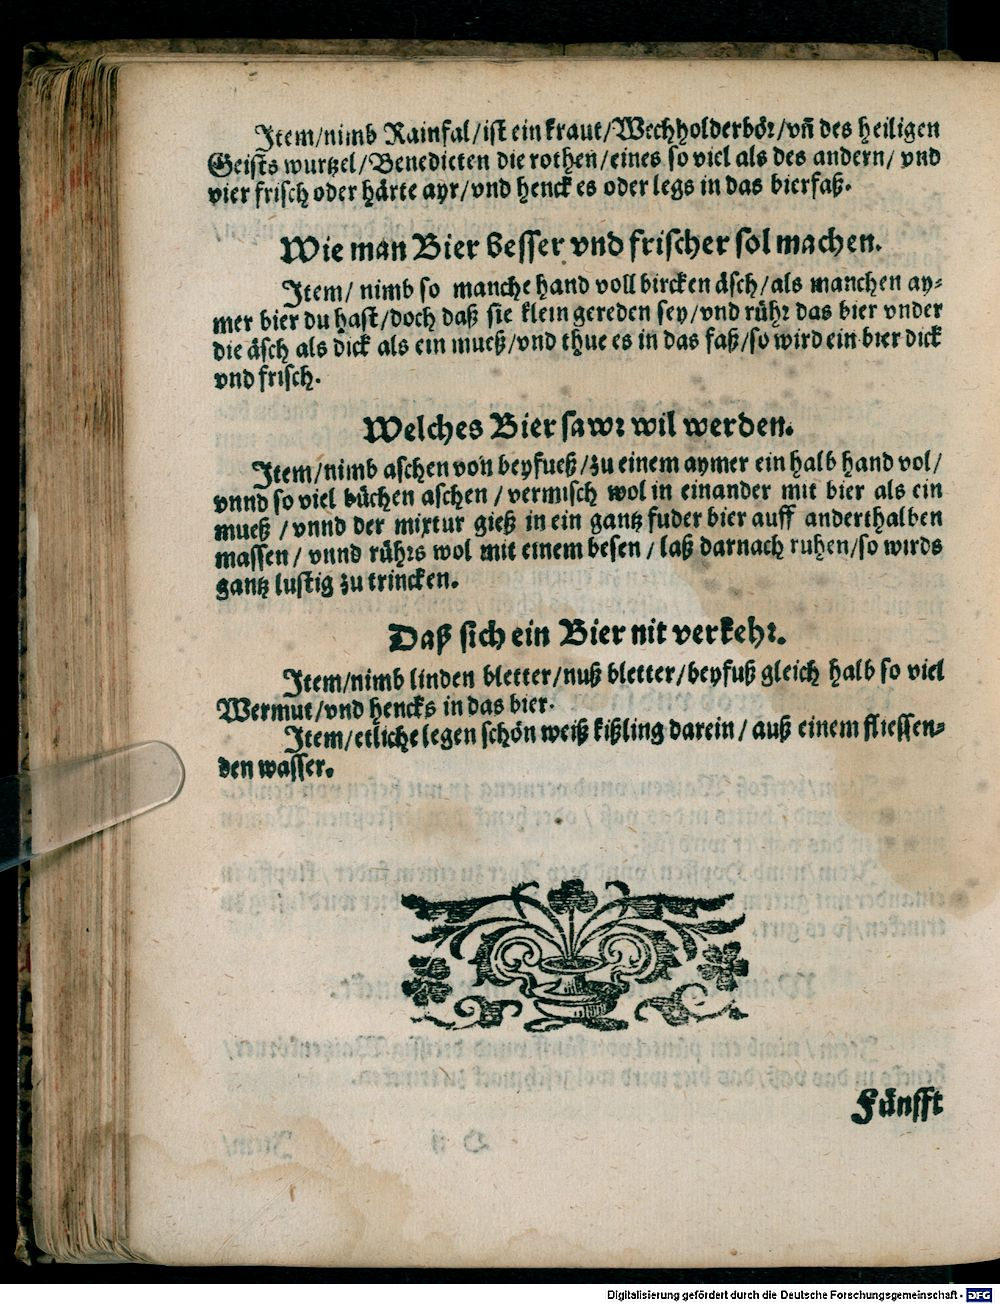 Item/nimb Rainfal/ist ein kraut/Wechholderbör/vñ des heiligen
Geists wurtzel/Benedicten die rothen/eines so viel als des andern/ vnd
vier frisch oder härte ayr/vnd henck es oder legs in das bierfaß.
Wie man Bier besser vnd frischer sol machen.
Item/ nimb so manche hand voll bircken äsch/als manchen ay-
mer bier du hast/doch daß sie klein gereden sey/vnd rühr das bier vnder
die äsch als dick als ein mueß/vnd thue es in das faß/so wird ein bier dick
vnd frisch.
Welches Bier sawr wil werden.
Item/nimb aschen von beyfueß/zu einem aymer ein halb hand vol/
vnnd so viel büchen aschen/vermisch wol in einander mit bier als ein
mueß/vnnd der mixtur gieß in ein gantz fuder bier auff anderthalben
massen/ vnnd rührs wol mit einem besen/ laß darnach ruhen/so wirds
gantz lustig zu trincken.
Daß sich ein Bier nit verkehr.
Item/nimb linden bletter/nuß bletter/beyfuß gleich halb so viel
Wermut/vnd hencks in das bier.
Item/etliche legen schön weiß kißling darein/ auß einem fliessen-
den wasser.
Fünfft
Digitalisierung gefördert durch die Deutsche Forschungsgemeinschaft - DFG